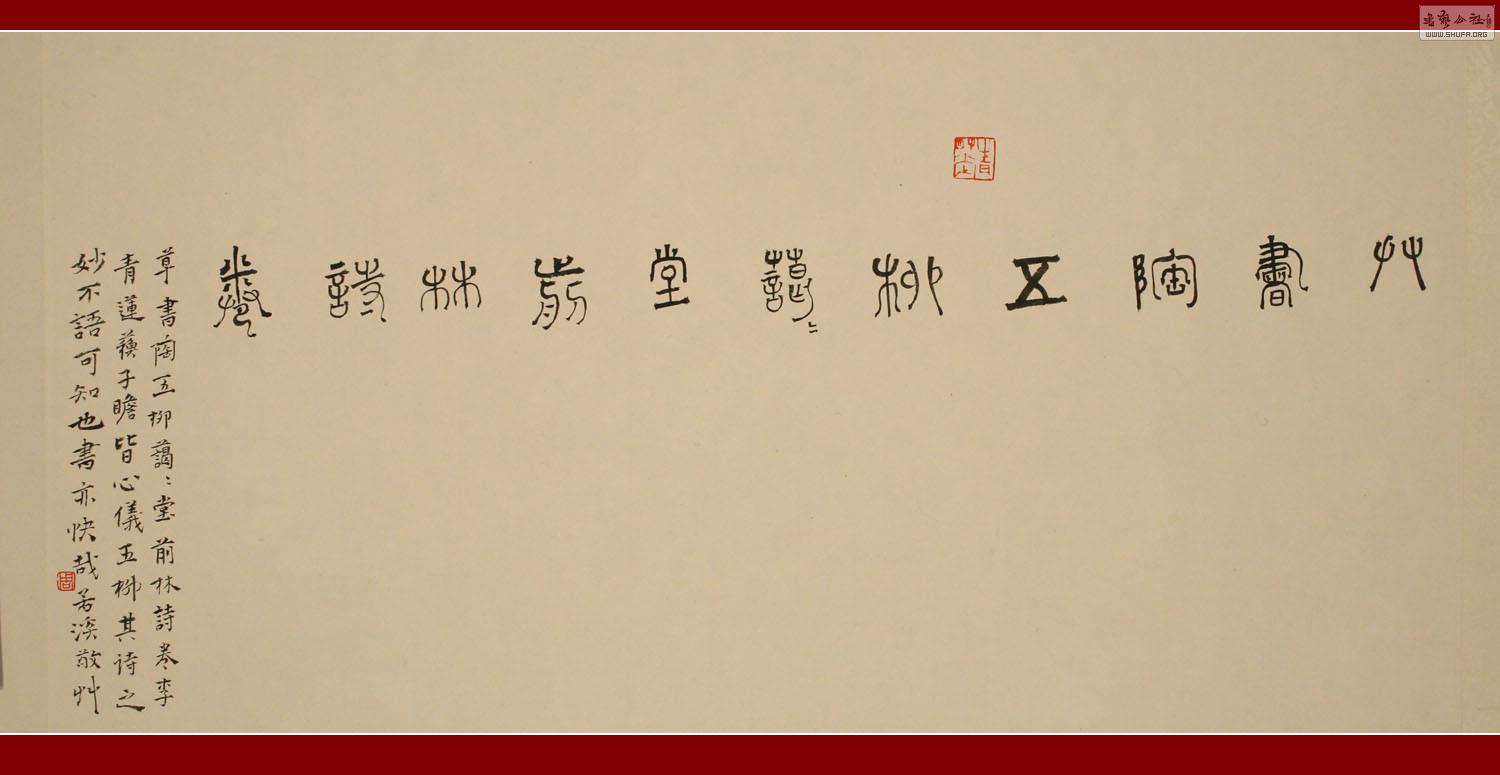 艸書陶五柳藹〻堂前林詩卷
草書陶五柳藹〻堂前林詩卷李
青蓮蘇子瞻皆心儀五柳其詩之
妙不語可知也書亦快哉若溪敬艸
WWW.SHUFA.ORG